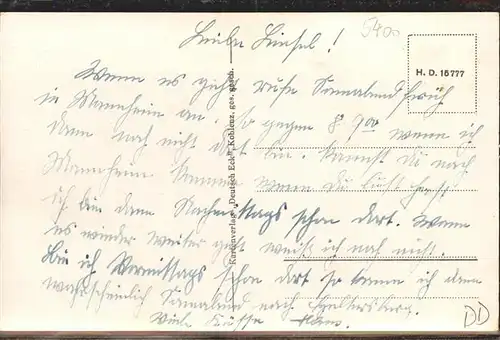 Liebe Liesel!
5400
H. D. 15777
Wenn es geht rufe Sonnabend früh
in Mannheim an. So gegen 8-9 00 wenn ich
dann noch nicht dort bin. Kannst Du nach
Mannheim kommen wenn Du Lust hast
ich bin dann Nachmittags schon dort. Wann
es wieder weiter geht weiß ich noch nicht.
Bin ich Vormittags schon dort so komme ich dann
wahrscheinlich Sonnabend nach
Viele Küsse Hans.
Kartenverlag „Deutsch Eck“ Koblenz, ges. gesch.
DD